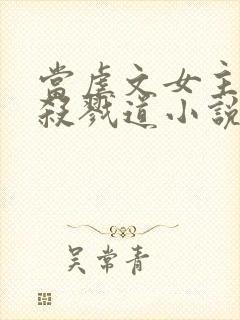 當虐文女主
殺戮道小說
吳常青